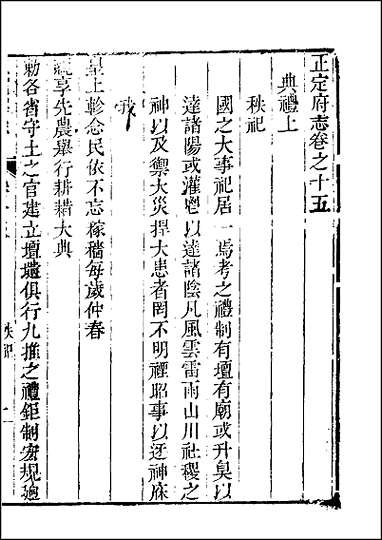 正定府志卷之十五
典禮上
秩祀
國之大事祀居一焉考之禮制有壇有廟或升臭以
達諸陽或灌鬯以達諸陰凡風雲雷雨山川社稷之
神以及禦大災捍大患者罔不明禋昭事以迓神庥
我
皇上軫念民依不忘稼穡每歲仲春
親享先農舉行耕耤大典
勅各省守土之官建立壇壝俱行九推之禮鉅制宏規
秩祀
一